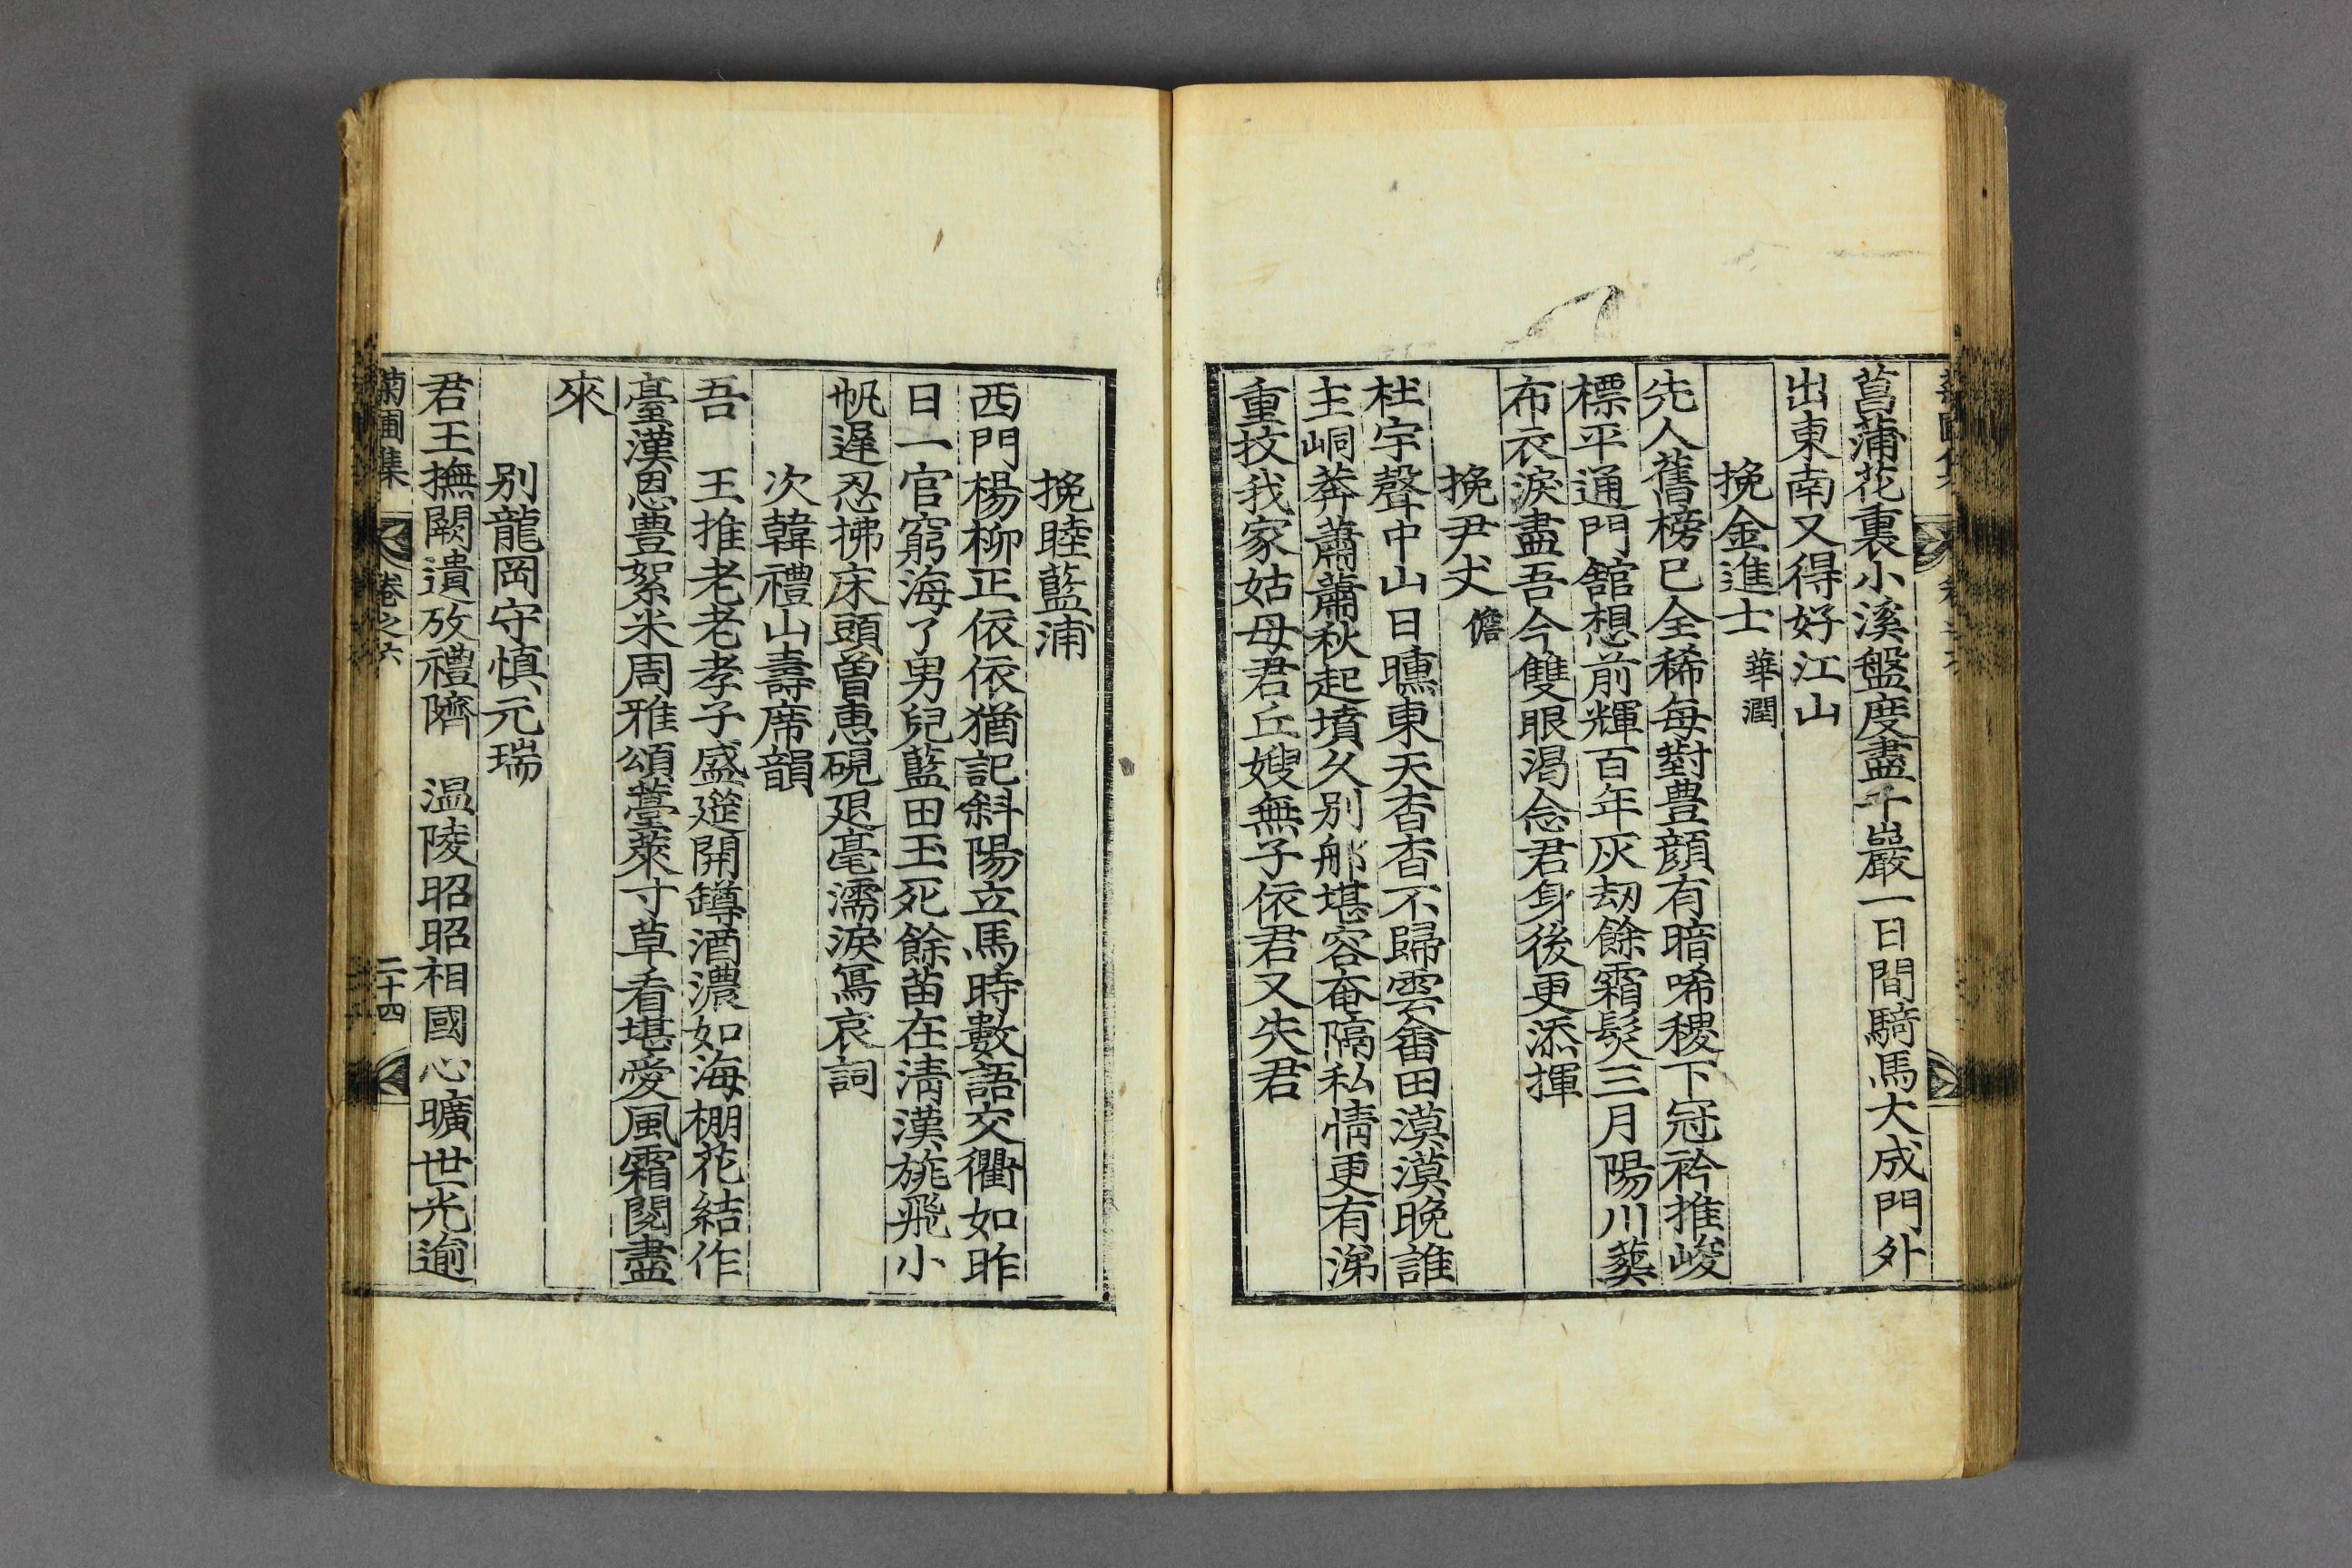 菖蒲花裏小溪盤度盡千巖一日間騎馬大成門外
出東南又得好江山
挽金進士 華潤
先人舊榜已全稀每對豊顔有暗唏稷下冠衿推峻
標平通門舘想前輝百年灰劫餘霜髮三月陽川葬
布衣淚盡吾今雙眼渴念君身後更添揮
挽尹丈 儋
杜宇聲中山日曛東天杳杳不歸雲畬田漠漠晩誰
主峒莽蕭蕭秋起墳久別郍堪容奄隔私情更有涕
重抆我家姑母君丘嫂無子依君又失君
挽睦藍浦
西門楊柳正依依猶記斜陽立馬時數語交衢如昨
日一官窮海了男兒藍田玉死餘苗在淸漢旐飛小
帆遲忍拂床頭曽惠硯退毫濡淚寫哀詞
次韓禮山壽席韻
吾 王推老老孝子盛筵開罇酒濃如海棚花結作
臺漢恩豊絮米周雅頌薹萊寸草看堪愛風霜閱盡
來
別龍岡守愼元瑞
君王撫闕遺攷禮隮 温陵昭昭相國心曠世光逾
菊圃集 卷之六 二十四